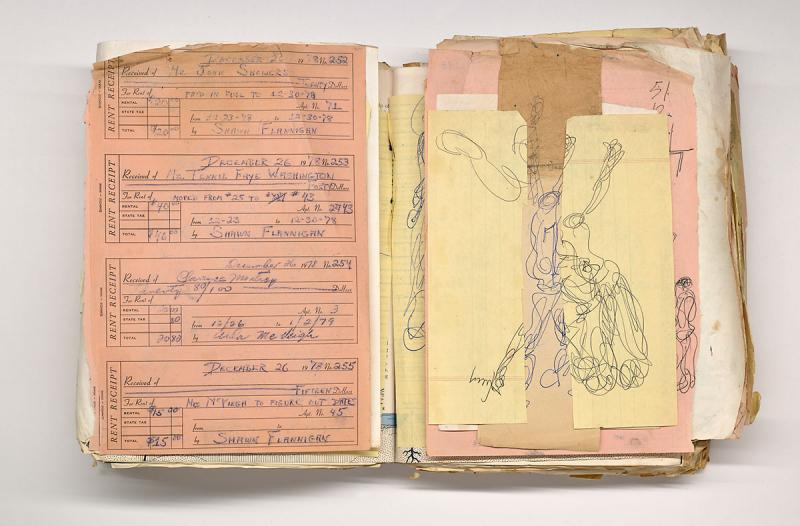 RENT RECEIPT
DECEMBER 26 1978 No. 252
Received of Mr. John Showers
Twenty Dollars
For Rent of PAID IN FULL TO 12-30-78
RENTAL $20 00 Apt. No. 71
STATE TAX from 12-23-78 to 12-30-78
TOTAL $20 00 by SHAWN FLANNIGAN
RENT RECEIPT
DECEMBER 26 1978 No. 253
Received of Ms. TENNIE FAYE WASHINGTON
FORTY Dollars
For Rent of MOVED FROM #25 TO #43
RENTAL $40 00 Apt. No. 43
STATE TAX from 12-23 to 12-30-78
TOTAL $40 00 by SHAWN FLANNIGAN
RENT RECEIPT
December 26 1978 No. 254
Received of
twenty 80/100 Dollars
For Rent of
RENTAL 20 00 Apt. No. 3
STATE TAX 80 from 12/26 to 1/2/79
TOTAL 20 80 by McVeigh
RENT RECEIPT
DECEMBER 26 1978 No. 255
Received of
FIFTEEN Dollars
For Rent of MRS McVEIGH TO FIGURE OUT DATE
RENTAL $15 00 Apt. No. 45
STATE TAX from to
TOTAL $15 00 by SHAWN FLANNIGAN
5/